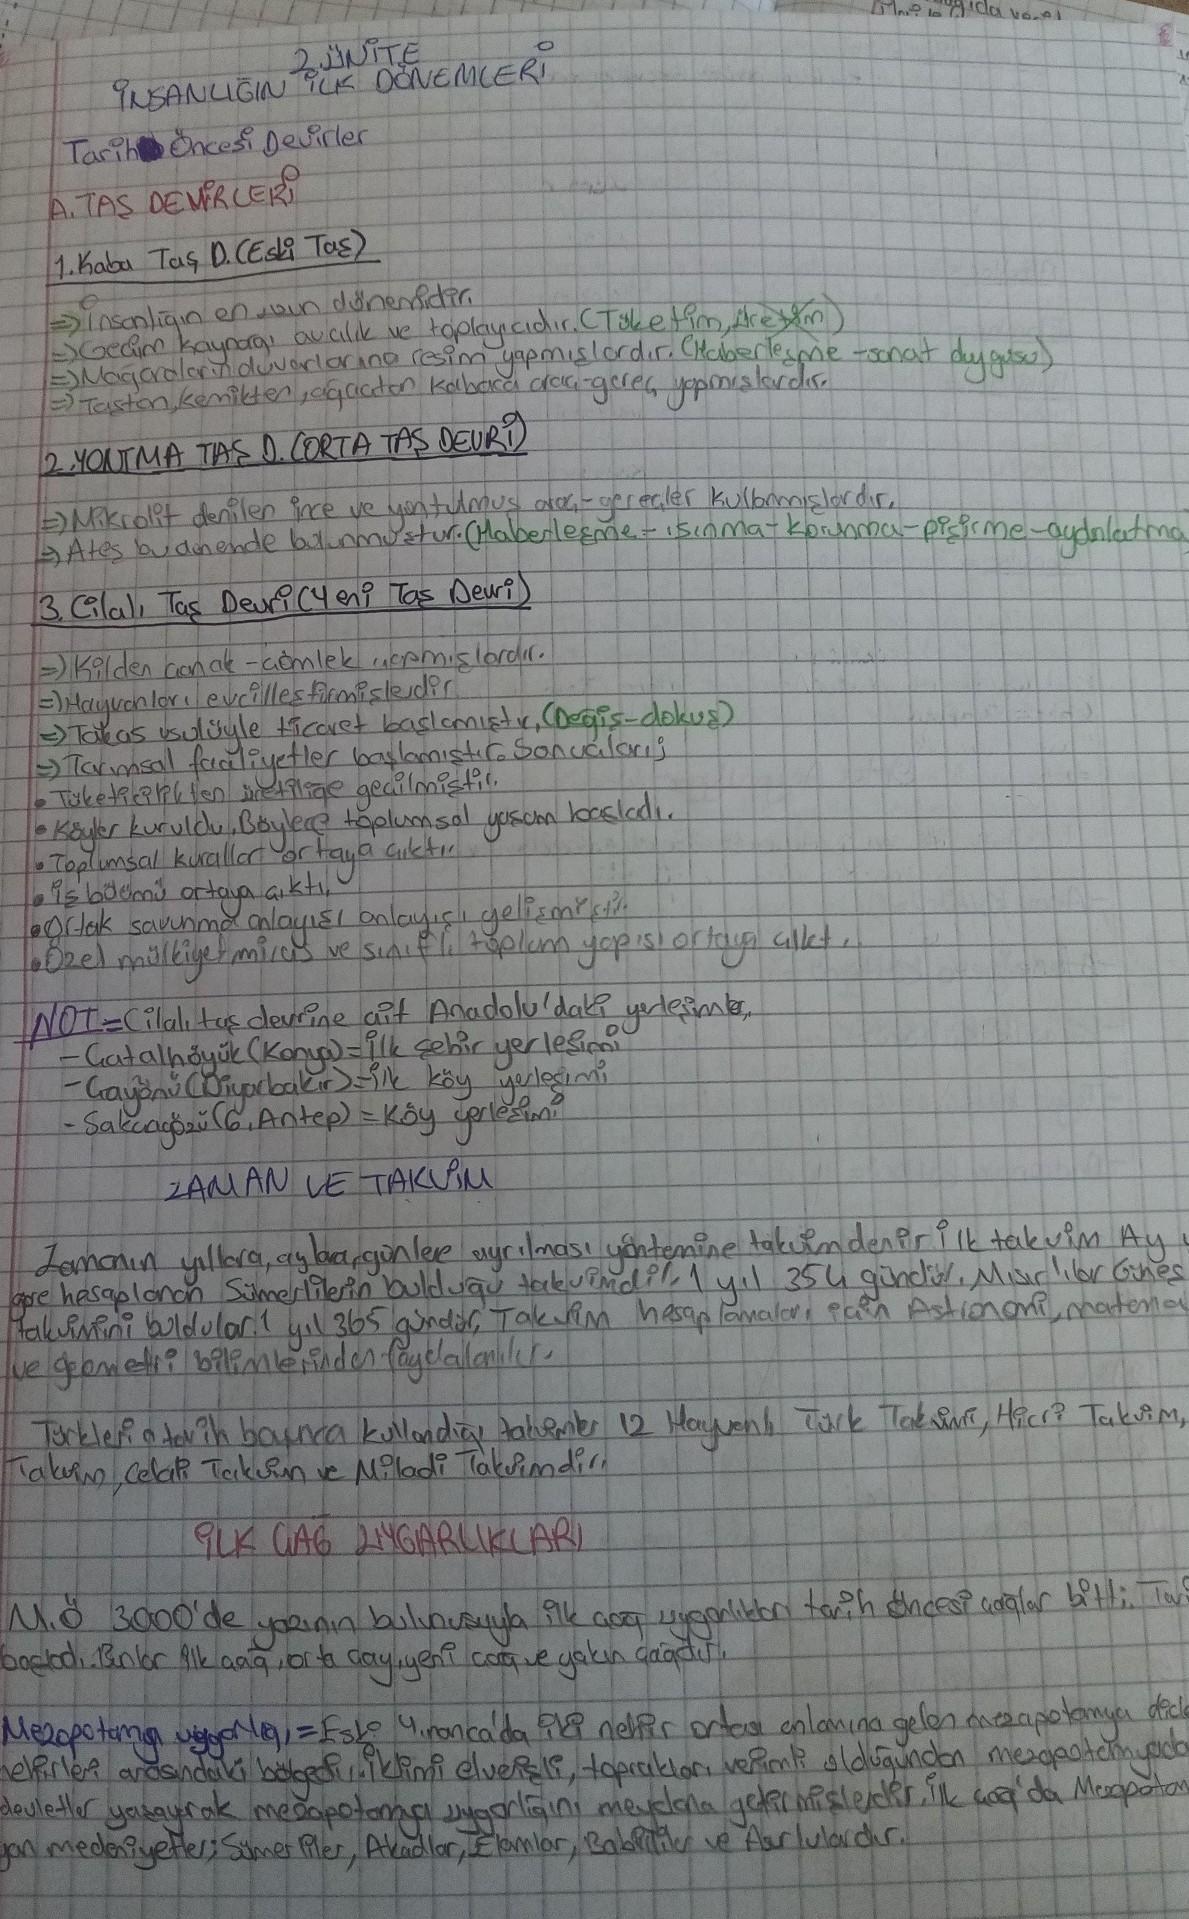 2. ÜNİTE
İNSANLIĞIN İLK DÖNEMLERİ
Tarih Öncesi Devirler
A. TAŞ DEVİRLERİ
1. Kaba Taş D. (Eski Taş)
=> İnsanlığın en uzun dönemidir.
=> Geçim kaynağı avcılık ve toplayıcıdır. (Tüketim,
=> Mağaraların duvarlarına resim yapmışlardır. (Haberleşme - sanat duygusu)
=> Taştan, kemikten, ağaçtan kabaca araç-gereç yapmışlardır.
2. YONTMA TAŞ D. (ORTA TAŞ DEVRİ)
=> Mikrolit denilen ince ve yontulmuş araç-gereçler kullanmışlardır.
=> Ateş bu dönemde bulunmuştur. (Haberleşme - ısınma - korunma - pişirme - aydınlatma
3. Cilalı Taş Devri (Yeni Taş Devri)
=> Kilden çanak-çömlek yapmışlardır.
=> Hayvanları evcilleştirmişlerdir
=> Takas usulüyle ticaret başlamıştır. (Değiş-dokuş)
=> Tarımsal faaliyetler başlamıştır. Sonuçları;
• Tüketicilikten üreticiliğe geçilmiştir.
• Köyler kuruldu. Böylece toplumsal yaşam başladı.
• Toplumsal kurallar ortaya çıktı.
• İş bölümü ortaya çıktı.
• Ortak savunma anlayışı anlayışı gelişmiştir.
• Özel mülkiyet miras ve sınıflı toplum yapısı ortaya çıktı.
NOT = Cilalı taş devrine ait Anadolu'daki yerleşimler,
- Çatalhöyük (Konya) = ilk şehir yerleşimi
- Çayönü (Diyarbakır) = ilk köy yerleşimi
- Sakçagözü (G. Antep) = Köy yerleşimi
ZAMAN VE TAKVİM
Zamanın yıllara, aylara, günlere ayrılması yöntemine takvim denir. İlk takvim Ay
göre hesaplanan Sümerlilerin bulduğu takvimdir. 1 yıl 354 gündür. Mısırlılar Güneş
takvimini buldular. 1 yıl 365 gündür. Takvim hesaplamaları için Astronomi, matema
ve geometri bilimlerinden faydalanılır.
Türklerin tarih boyunca kullandığı takvimler 12 Hayvanlı Türk Takvimi, Hicri Takvim,
Takvim, Celali Takvim ve Miladi Takvimdir.
İLK ÇAĞ UYGARLIKLARI
M.Ö 3000'de yazının bulunuşuyla ilk çağ uygarlıkları tarih öncesi çağlar bitti. Tari
başladı. Bunlar ilk çağ, orta çağ, yeni çağ ve yakın çağdır.
Mezopotamya uygarlığı = Eski Yunanca'da iki nehir ortası anlamına gelen mezapotamya dicle
nehirleri arasındaki bölgedir. İklimi elverişli, toprakları verimli olduğundan mezopotamyada
devletler yaşayarak mezapotamya uygarlığını meydana getirmişlerdir. İlk çağ'da Mezopotam
yan medeniyetler; Sümerliler, Akadlar, Elamlar, Babilliler ve Asurlulardır.